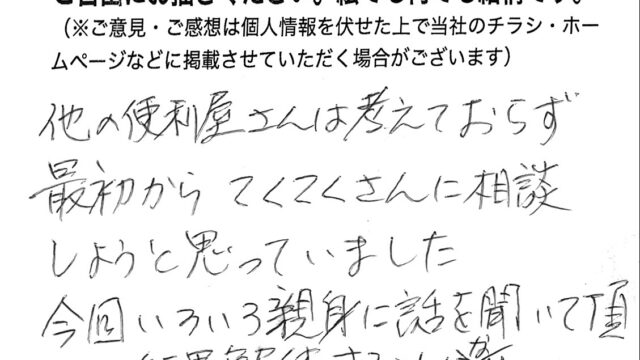 （※ご意見・ご感想は個人情報を伏せた上で当社のチラシ・ホー
ムページなどに掲載させていただく場合がございます）
他の便利屋さんは考えておらず
最初から てくてくさんに相談
しようと思っていました
今回いろいろ親身に話を聞いて頂